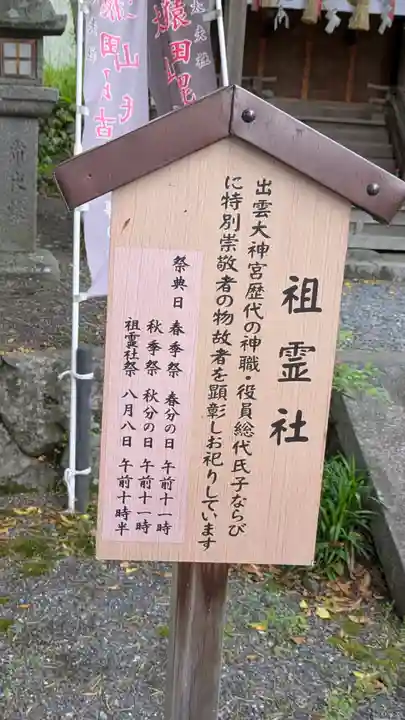 祖霊社
出雲大神宮歴代の神職・役員総代氏子ならび
に特別崇敬者の物故者を顕彰しお祀りしています
祭典日 春季祭 春分の日 午前十一時
秋季祭 秋分の日 午前十一時
祖霊社祭 八月八日 午前十時半